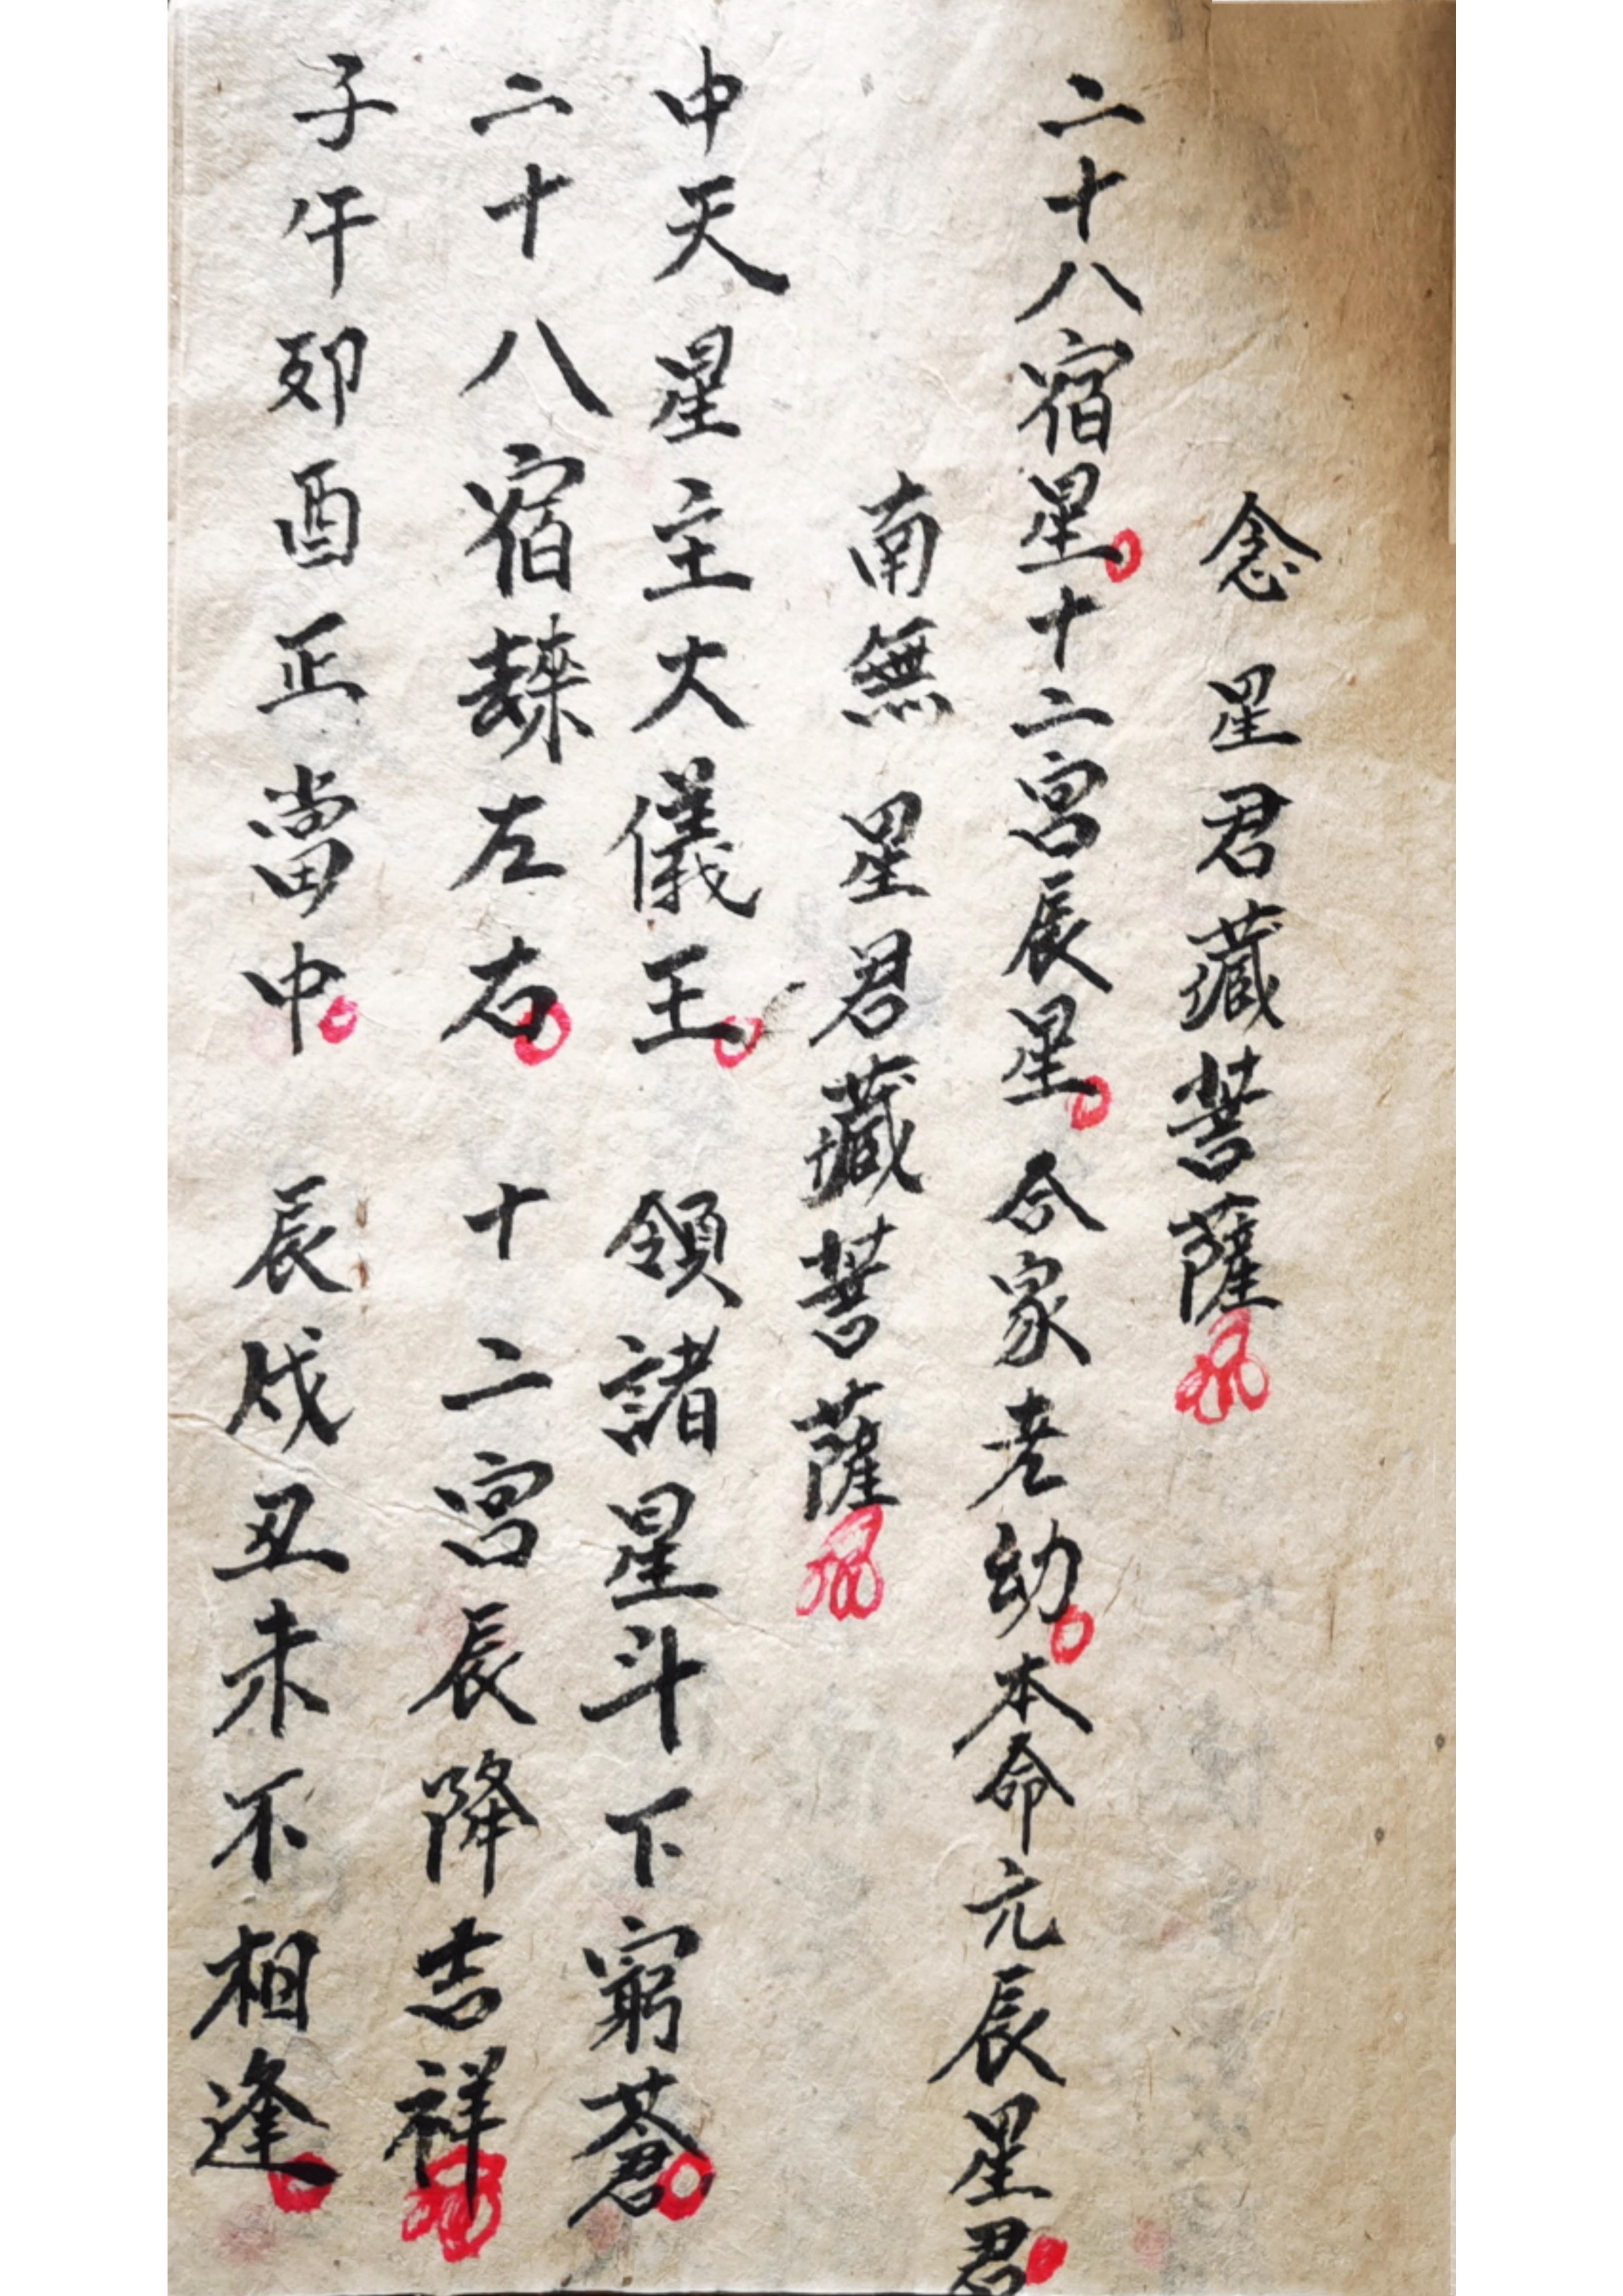 念星君藏菩薩
二十八宿星。十二宮辰星。合家老幼。本命元辰星君
南無星君藏菩薩
中天星主大儀王。領諸星斗下窮蒼。
二十八宿隸左右。十二宮辰降吉祥
子午卯酉正當中。辰戌丑未不相逢。